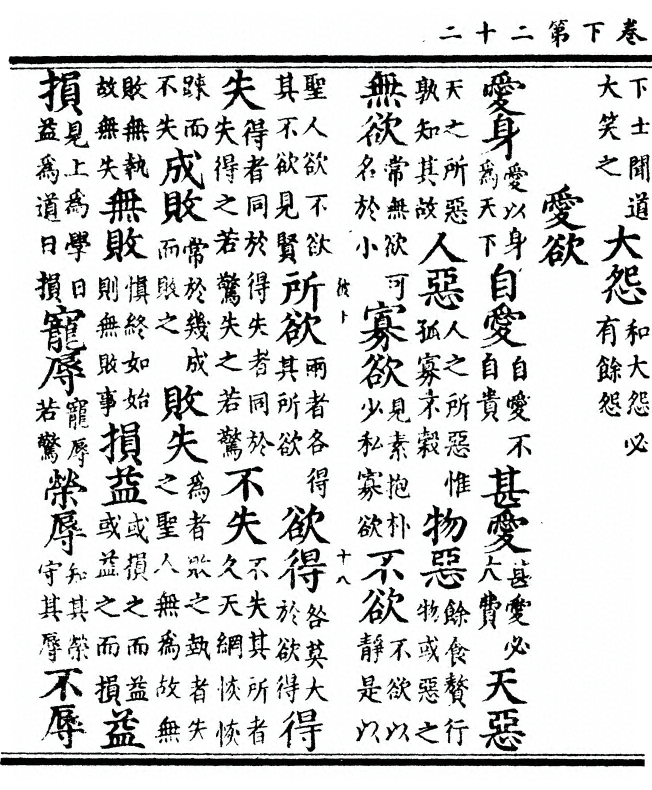 卷下第二十二
下士聞道大笑之大怨和大怨必有餘怨
愛欲
愛身愛以身為天下自愛自愛不自貴甚愛甚愛必大費天惡
天之所惡孰知其故人惡人之所惡惟孤寡不穀物惡餘食贅行物或惡之
無欲常無欲可名於小寡欲見素抱朴少私寡欲不欲不欲以靜是以
聖人欲不欲其不欲見賢所欲兩者各得其所欲欲得咎莫大於欲得得
十八
失得者同於得失者同於失得之若驚失之若驚不失不失其所者久天網恢恢
踈而不失成敗常於幾成而敗之敗失為者敗之執者失之聖人無為故無
敗無執故無失無敗慎終如始則無敗事損益或損之而益或益之而損益
損見上為學日益為道日損寵辱寵辱若驚榮辱知其榮守其辱不辱